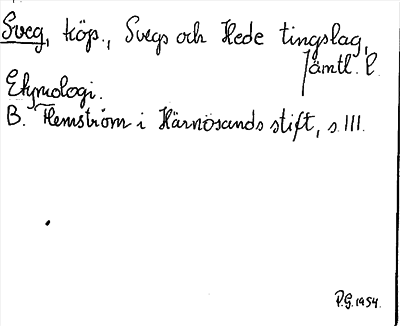 Sveg, köp., Svegs och Hede tingslag,
Jämtl. l.
Etymologi.
B. Hemström i Härnösands stift, s. 111.
P.G. 1954.